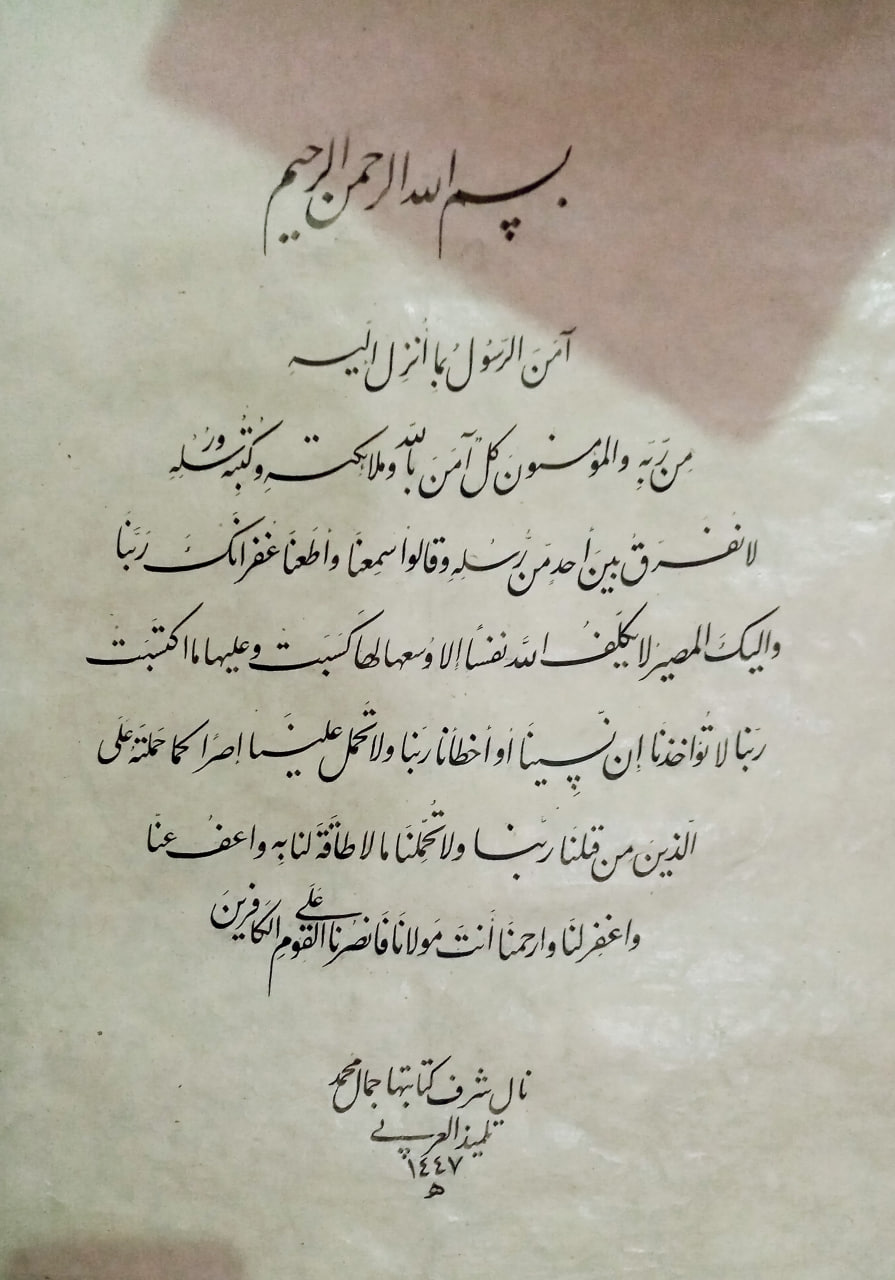 بسم الله الرحمن الرحيم
آمَنَ الرَسُولُ بما أُنزِلَ إليه
مِن رَّبِّهِ والمؤمنونَ كلٌّ آمَنَ بالله وملائكته وكُتُبِه ورُسُله
لا نفَرقُ بينَ أحدٍ مِّن رُّسُلِهِ وقالوا سَمِعنَا وأطَعنَا غفرانَكَ رَبَّنَا
وإليكَ المصير لا يكلّفُ اللهُ نفسًا إلا وُسعها لها كَسَبَت وعليها ما اكتَسَبَت
رَبّنا لا تُؤاخذنَا إن نَّسِينَا أو أخطأنا رَبَنا ولا تَحمل علينَا إصرًا كما حَمَلتَهُ عَلَى
الّذينَ مِن قبلنَا ربّنا ولا تُحَمّلنَا ما لا طاقَةَ لنا بِه واعفُ عنّا
واغفِر لنَا وارحمنَا أنتَ مَولانَا فَانصُرنا عَلَى القَومِ الكَافِرينَ
نال شرف كتابتها جمال محمد
تلميذ العربي
١٤٤٧
ه